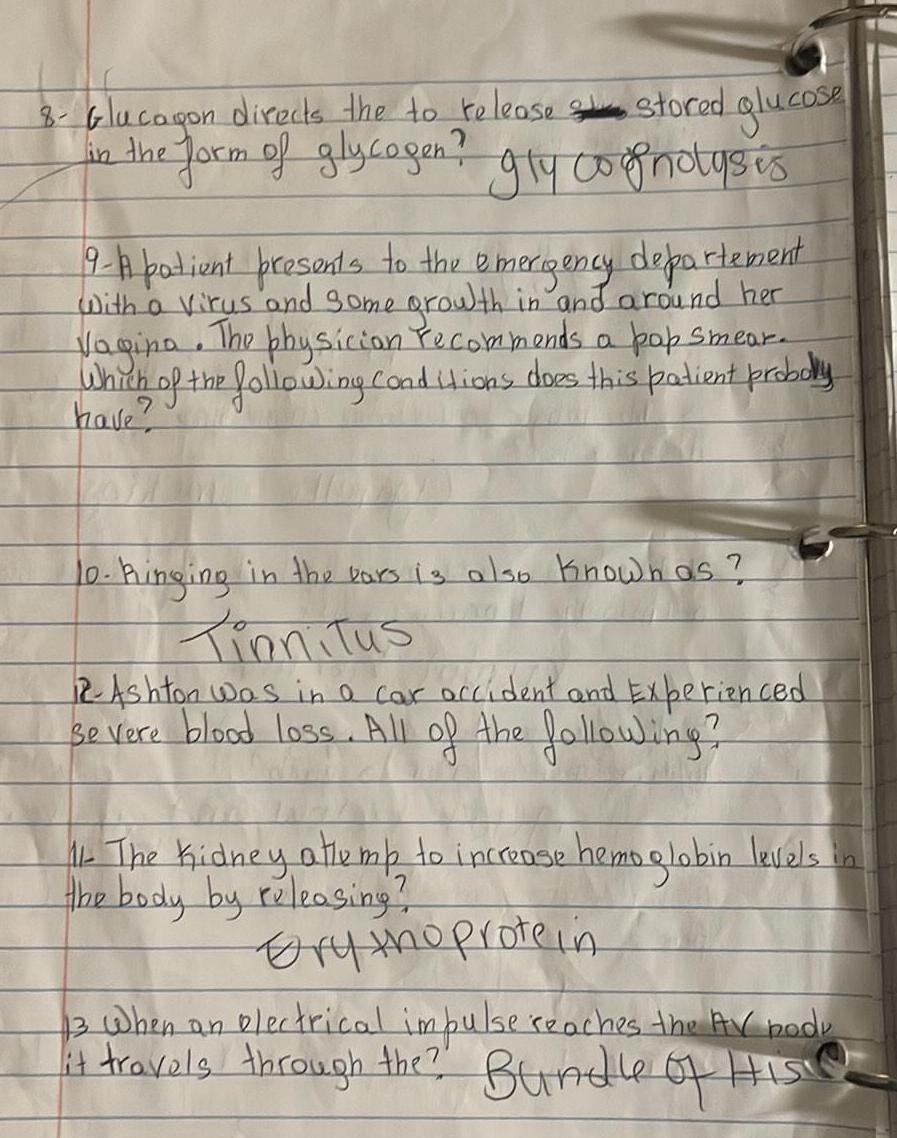 8- Glucagon directs the to release stored glucose
in the form of glycogen?
glycognolysis
9- A patient presents to the emergency departement
with a virus and some growth in and around her
Vagina. The physician recommends a pap smear.
Which of the following conditions does this patient probaly
have?
10- Ringing in the ears is also known as?
Tinnitus
12- Ashton was in a car accident and Experienced
severe blood loss. All of the following?
11- The kidney attemp to increase hemoglobin levels in
the body by releasing?
Erythoprotein
13 When an electrical impulse reaches the AV node
it travels through the?
Bundle of His